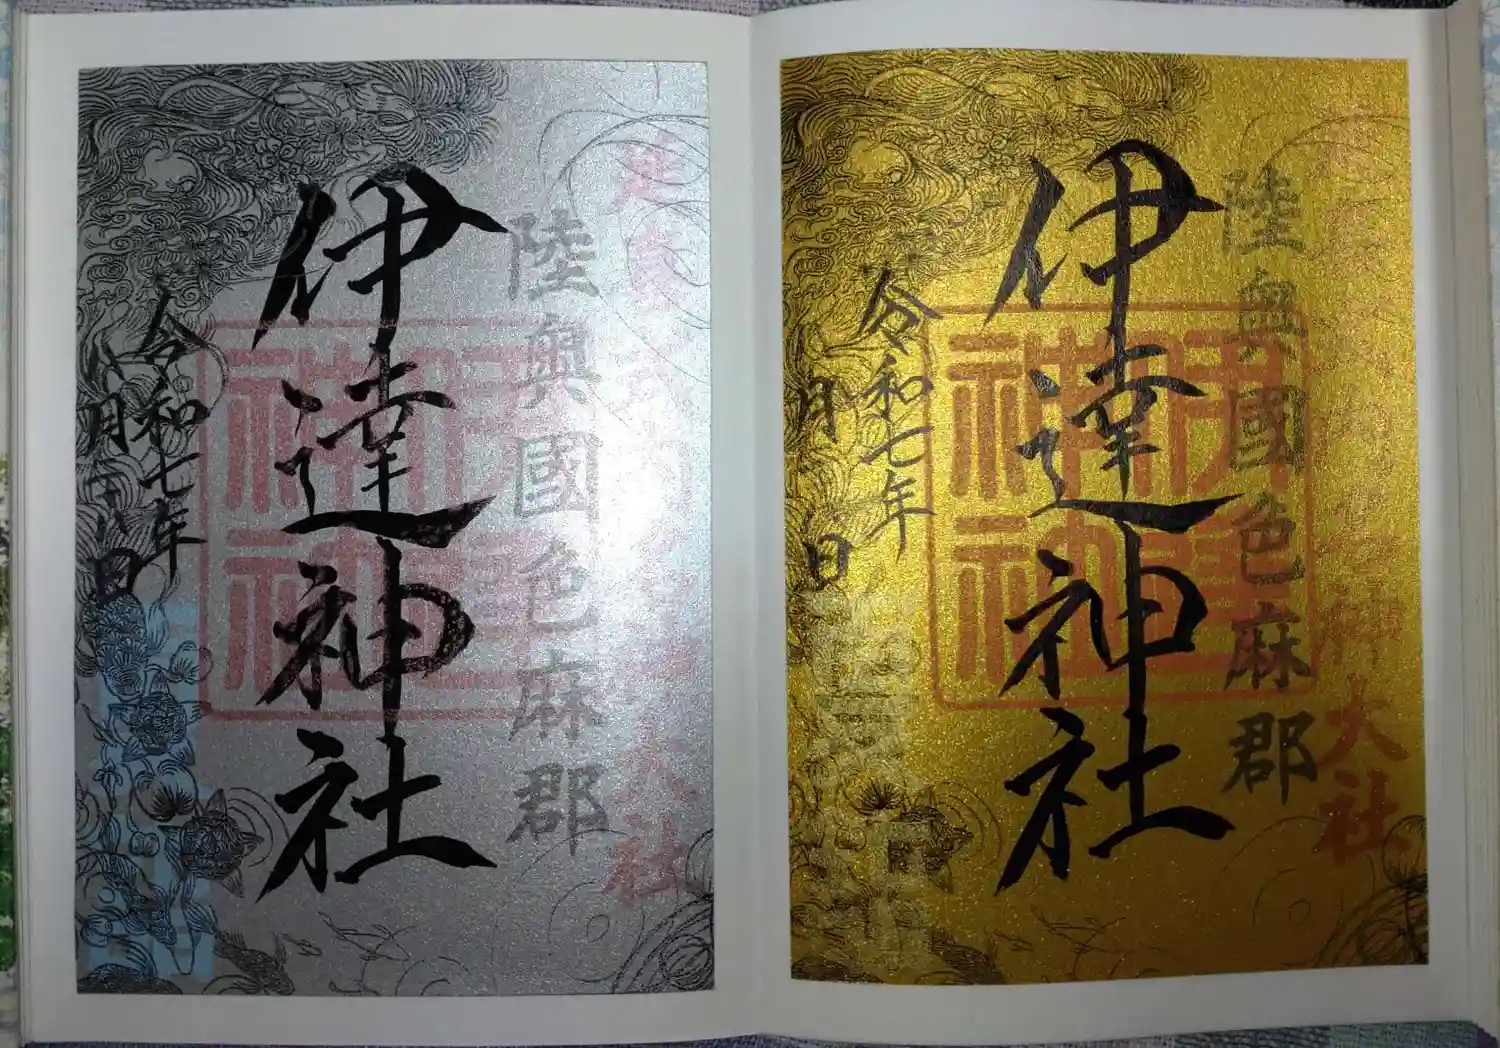 大社
陸奧國色麻郡
伊達神社
伊達神社
令和七年
月 日
大社
陸奧國色麻郡
伊達神社
伊達神社
令和七年
月十八日